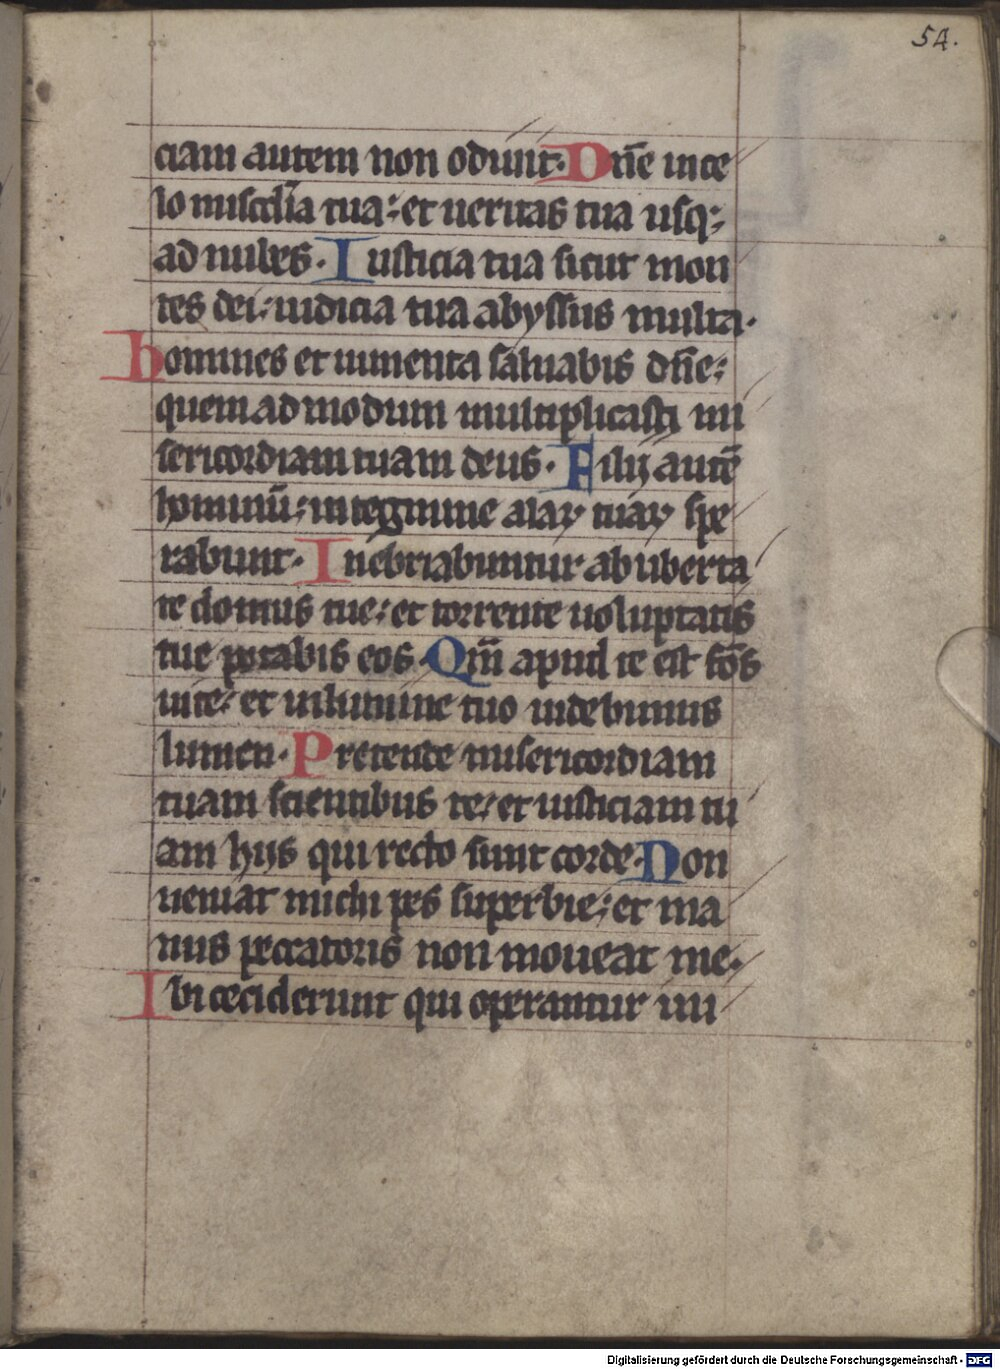 54.
ciam autem non odiuit. Dn̄e in ce
lo misc̄dia tua: et ueritas tua usq;
ad nubes. Iusticia tua sicut mon
tes dei: iudicia tua abyssus multa.
homines et iumenta saluabis dn̄e:
quemadmodum multiplicasti mi
sericordiam tuam deus. Filij autē
hominū: in tegmine alaꝝ tuaꝝ spe
rabunt. Inebriabuntur ab uberta
te domus tue: et torrente uoluptatis
tue potabis eos. Qm̄ apud te est fōs
uite: et in lumine tuo uidebimus
lumen. Pretende misericordiam
tuam scientibus te: et iusticiam tu
am hijs qui recto sunt corde. Non
ueniat michi pes superbie: et ma
nus peccatoris non moueat me.
Ibi ceciderunt qui operantur ini
Digitalisierung gefördert durch die Deutsche Forschungsgemeinschaft - DFG